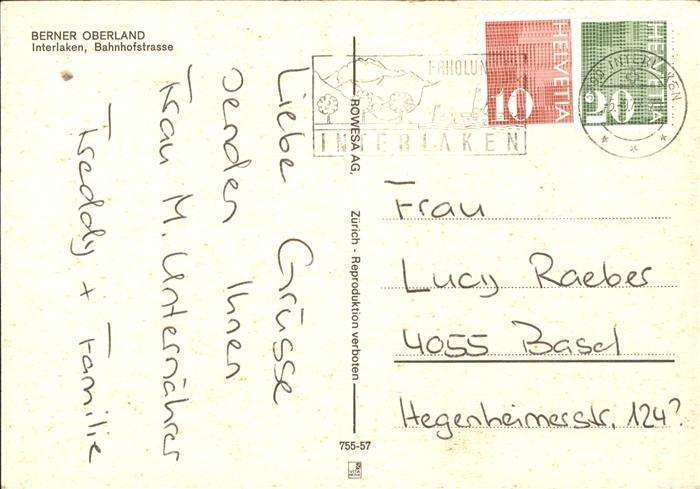 BERNER OBERLAND
Interlaken, Bahnhofstrasse
Liebe Grüsse
senden Ihnen
Frau M. Unternährer
Freddy + Familie
ROWESA AG, Zürich - Reproduktion verboten
755-57
HELVETIA
10
HELVETIA
20
INTERLAKEN
INTERLAKEN
Frau
Lucy Raeber
4055 Basel
Hegenheimerstr. 124?